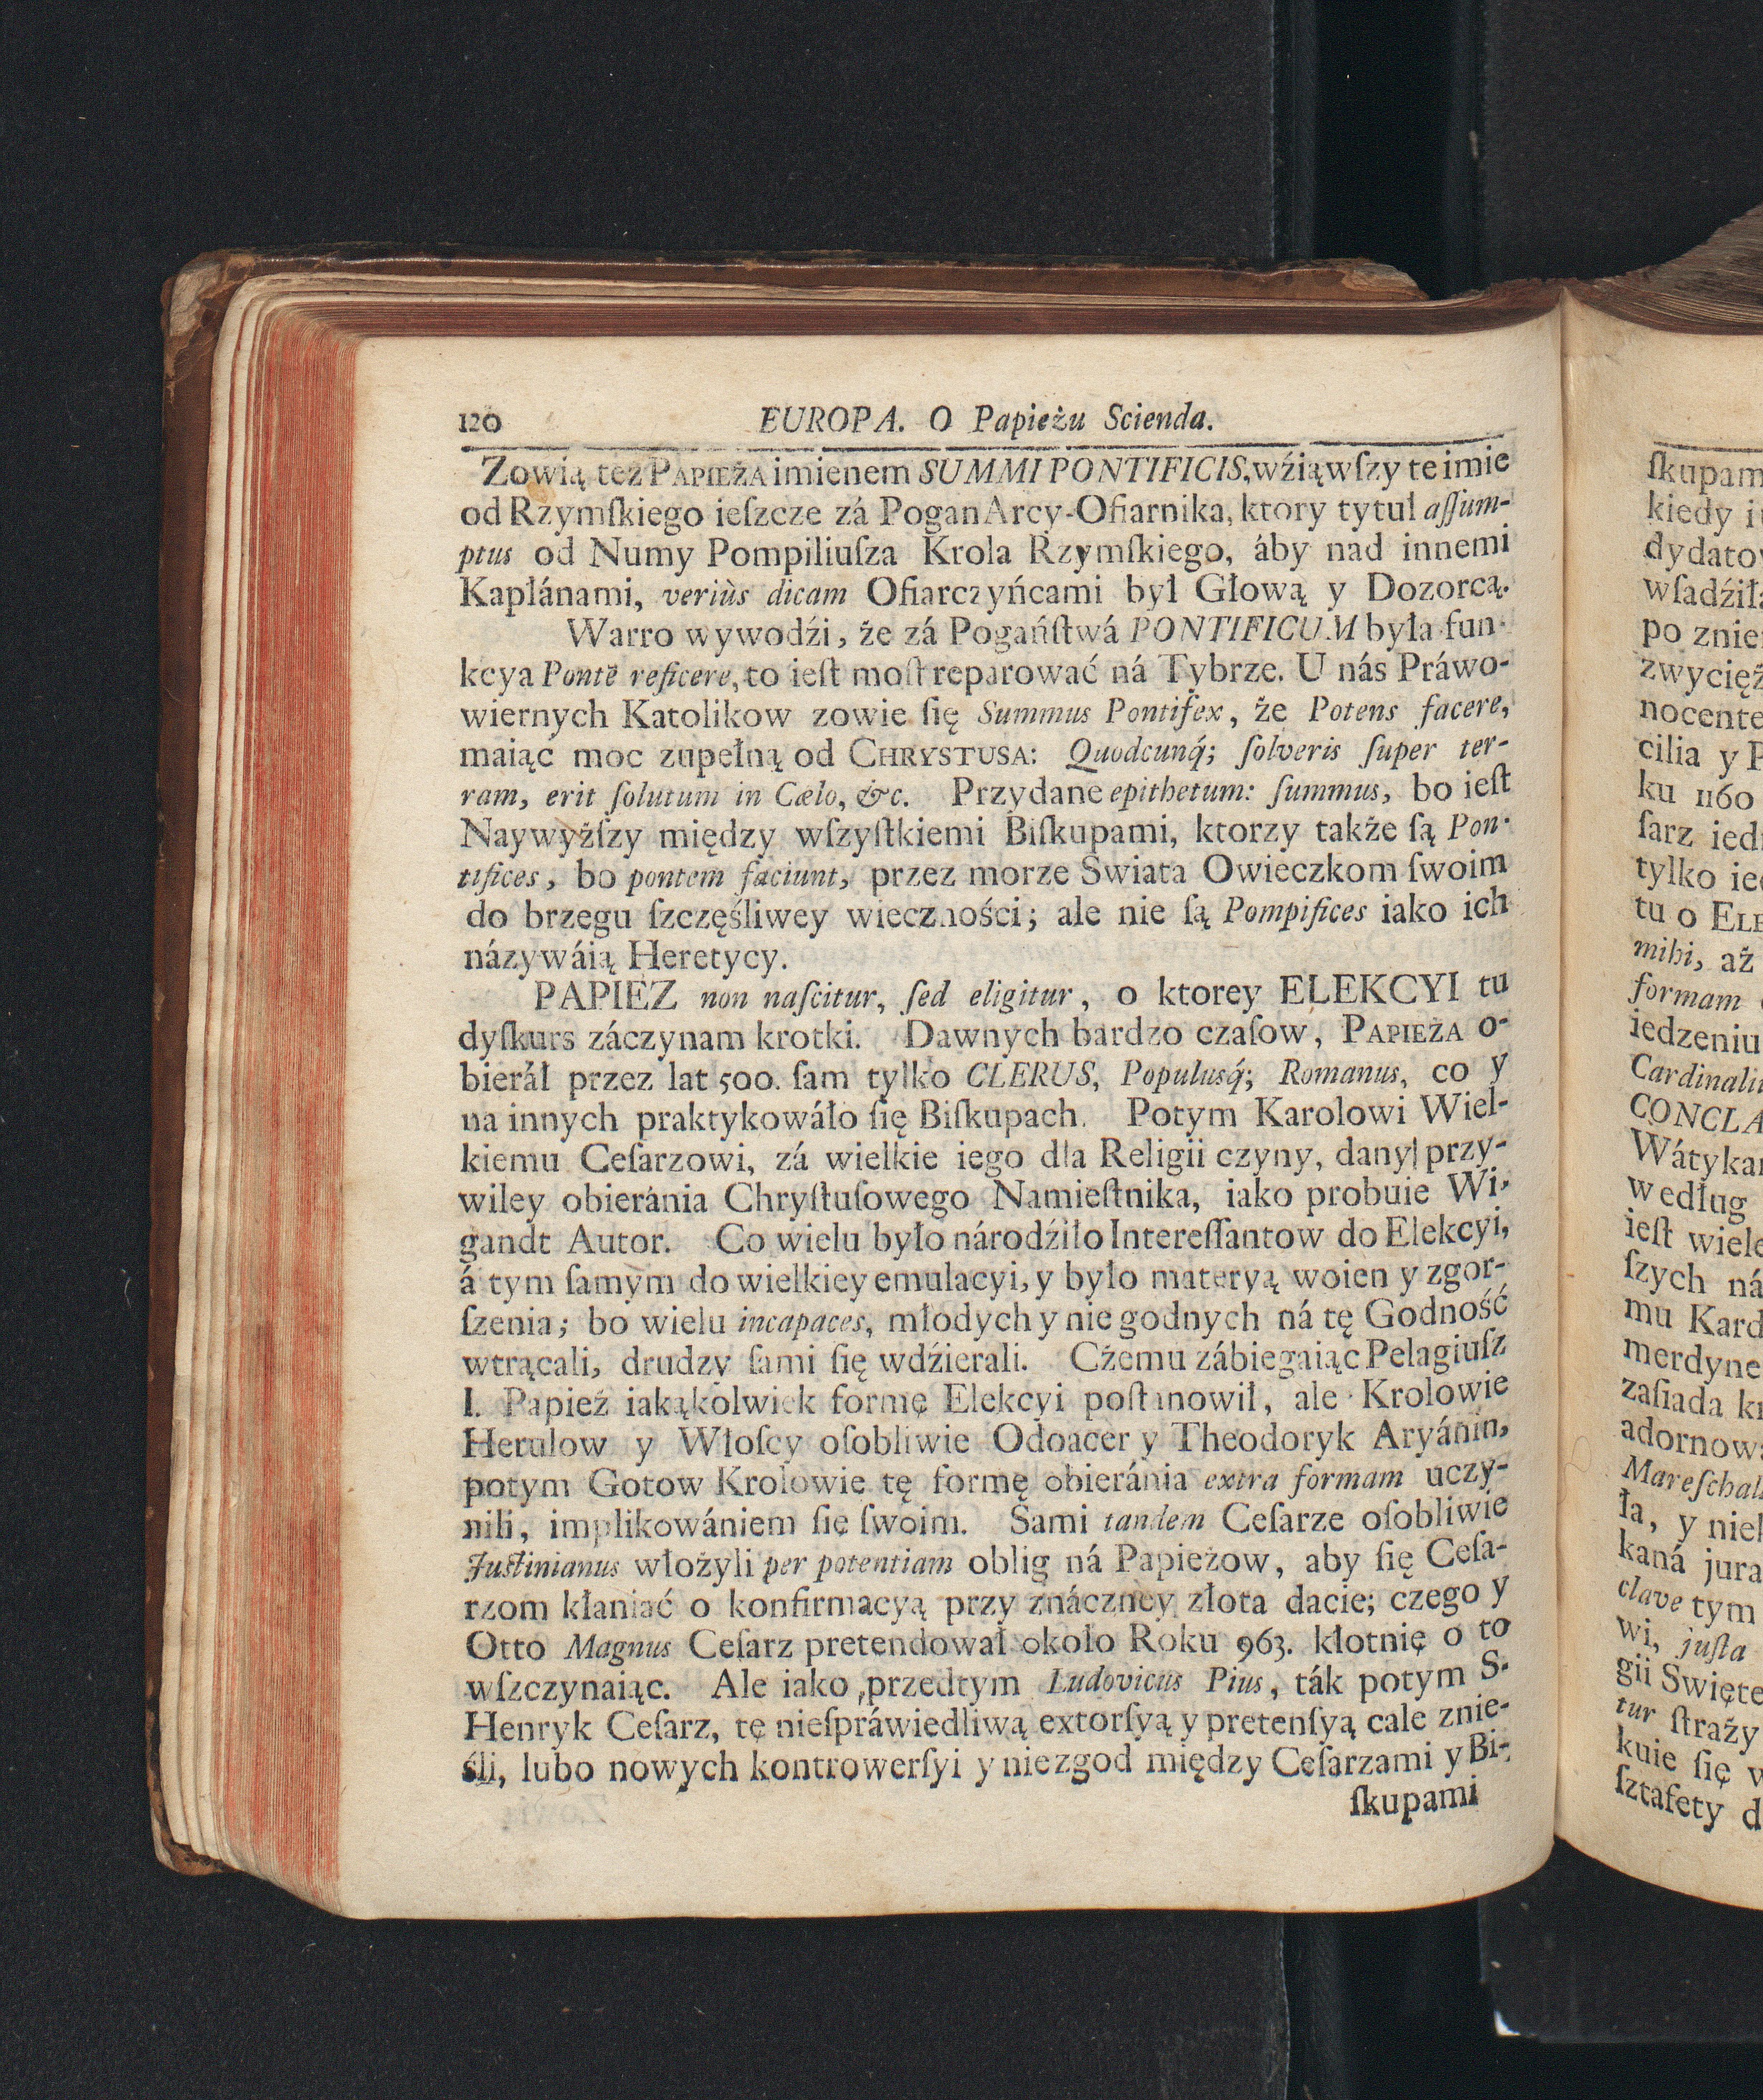 120 EUROPA. O Papieżu Scienda.
Zowią też PAPIEŻA imienem SUMMI PONTIFICIS, wźiąwſzy te imie
od Rzymſkiego ieſzcze zá Pogan Arcy-Ofiarnika, ktory tytuł aſſum-
ptus od Numy Pompiliuſza Krola Rzymſkiego, áby nad innemi
Kapłánami, veriùs dicam Ofiarczyńcami był Głową y Dozorcą.
Warro wywodźi, że zá Pogáńſtwá PONTIFICUM była fun-
kcya Pontē reficere, to ieſt moſt reparować ná Tybrze. U nás Práwo-
wiernych Katolikow zowie ſię Summus Pontifex, że Potens facere,
maiąc moc zupełną od CHRYSTUSA: Quodcunq́; ſolveris ſuper ter-
ram, erit ſolutum in Cælo, &c. Przydane epithetum: ſummus, bo ieſt
Naywyżſzy między wſzyſtkiemi Biſkupami, ktorzy także ſą Pon-
tifices, bo pontem faciunt, przez morze Swiata Owieczkom ſwoim
do brzegu ſzczęśliwey wieczności; ale nie ſą Pompifices iako ich
názywáią Heretycy.
PAPIEŻ non naſcitur, ſed eligitur, o ktorey ELEKCYI tu
dyſkurs záczynam krotki. Dawnych bardzo czaſow, PAPIEŻA o-
bieráł przez lat 500. ſam tylko CLERUS, Populusq́; Romanus, co y
na innych praktykowáło ſię Biſkupach. Potym Karolowi Wiel-
kiemu Ceſarzowi, zá wielkie iego dla Religii czyny, dany przy-
wiley obieránia Chryſtuſowego Namieſtnika, iako probuie Wi-
gandt Autor. Co wielu było národźiło Intereſſantow do Elekcyi,
á tym ſamym do wielkiey emulacyi, y było materyą woien y zgor-
ſzenia; bo wielu incapaces, młodych y nie godnych ná tę Godność
wtrącali, drudzy ſami ſię wdźierali. Cżemu zábiegaiąc Pelagiuſz
I. Papież iakąkolwiek formę Elekcyi poſtanowił, ale Krolowie
Herulow y Włoſcy oſobliwie Odoacer y Theodoryk Aryánin,
potym Gotow Krolowie tę formę obieránia extra formam uczy-
nili, implikowániem ſię ſwoim. Sami tandem Ceſarze oſobliwie
Juſtinianus włożyli per potentiam oblig ná Papieżow, aby ſię Ceſa-
rzom kłaniać o konfirmacyą przy znáczney złota dacie; czego y
Otto Magnus Ceſarz pretendował około Roku 963. kłotnię o to
wſzczynaiąc. Ale iako przedtym Ludovicus Pius, ták potym S.
Henryk Ceſarz, tę nieſpráwiedliwą extorſyą y pretenſyą cale znie-
śli, lubo nowych kontrowerſyi y niezgod między Ceſarzami y Bi-
ſkupami
ſkupam
kiedy
dydato
wſadźiła
po znie
zwycięż
nocente
cilia y P
ku 1160
ſarz ied
tylko ie
tu o ELE
mihi, aż
formam
iedzeniu
Cardinali
CONCLA
Wátyka
Według
ieſt wiele
ſzych ná
mu Kard
merdyne
zaſiada k
adornow
Mareſchal
ła, y nie
kaná jura
clave tym
wi, juſta
gii Swięte
tur ſtraży
kuie ſię w
ſztafety d